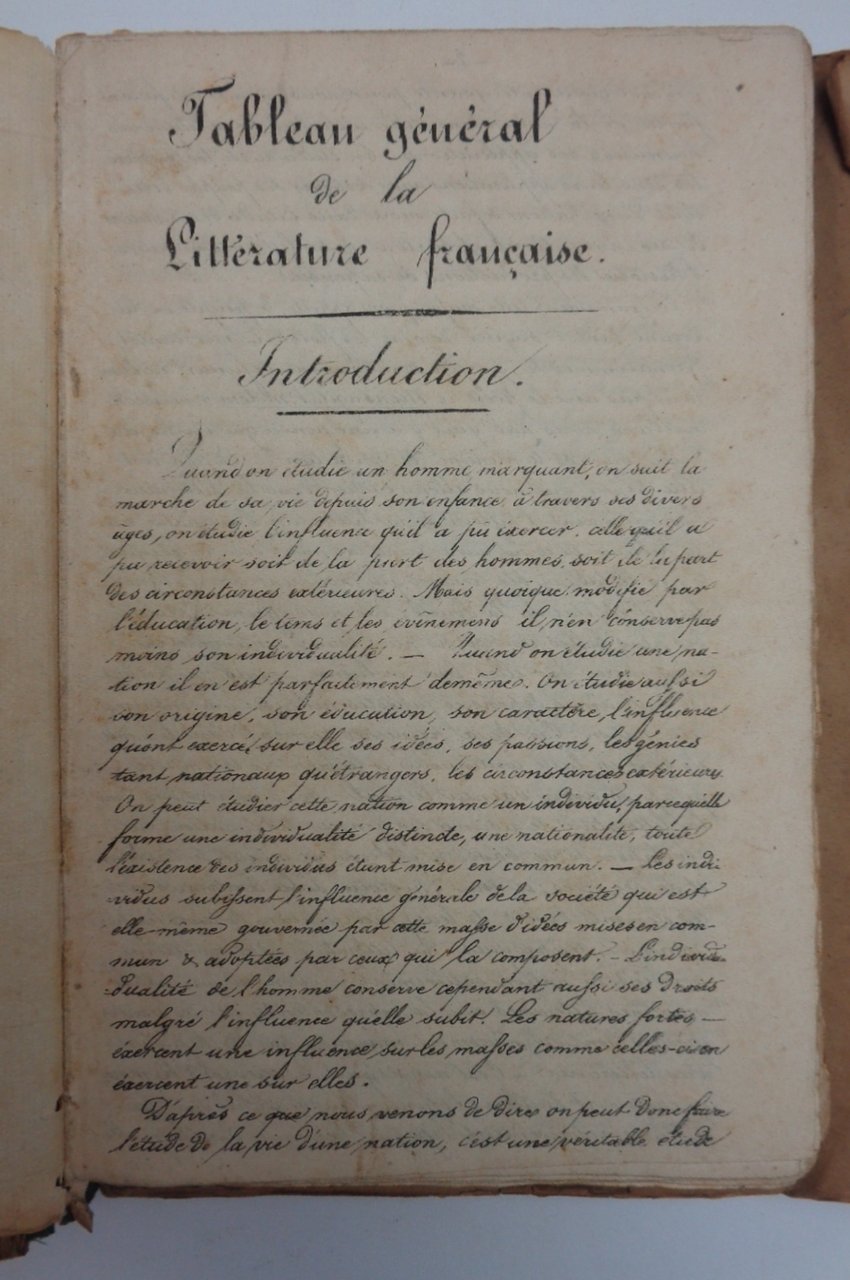 Tableau général
de la
Littérature française.
Introduction.
Quand on étudie un homme marquant, on suit la
marche de sa vie depuis son enfance à travers ses divers
âges, on étudie l'influence qu'il a pu exercer, celle qu'il a
pu recevoir soit de la part des hommes, soit de la part
des circonstances extérieures. Mais quoique modifié par
l'éducation, le tems et les évènemens il n'en conserve pas
moins son individualité. — Quand on étudie une na-
tion il en est parfaitement de même. On étudie aussi
son origine, son éducation, son caractère, l'influence
qu'ont exercé sur elle ses idées, ses passions, les génies
tant nationaux qu'étrangers, les circonstances extérieures.
On peut étudier cette nation comme un individu, parcequ'elle
forme une individualité distincte, une nationalité, toute
l'existence des individus étant mise en commun. — Les indi-
vidus subissent l'influence générale de la société qui est
elle-même gouvernée par cette masse d'idées mises en com-
mun & adoptées par ceux qui la composent. — L'individu-
dualité de l'homme conserve cependant aussi ses droits
malgré l'influence qu'elle subit. Les natures fortes —
éxercent une influence sur les masses comme celles-ci en
éxercent une sur elles.
D'après ce que nous venons de dire on peut donc faire
l'étude de la vie d'une nation, c'est une véritable étude